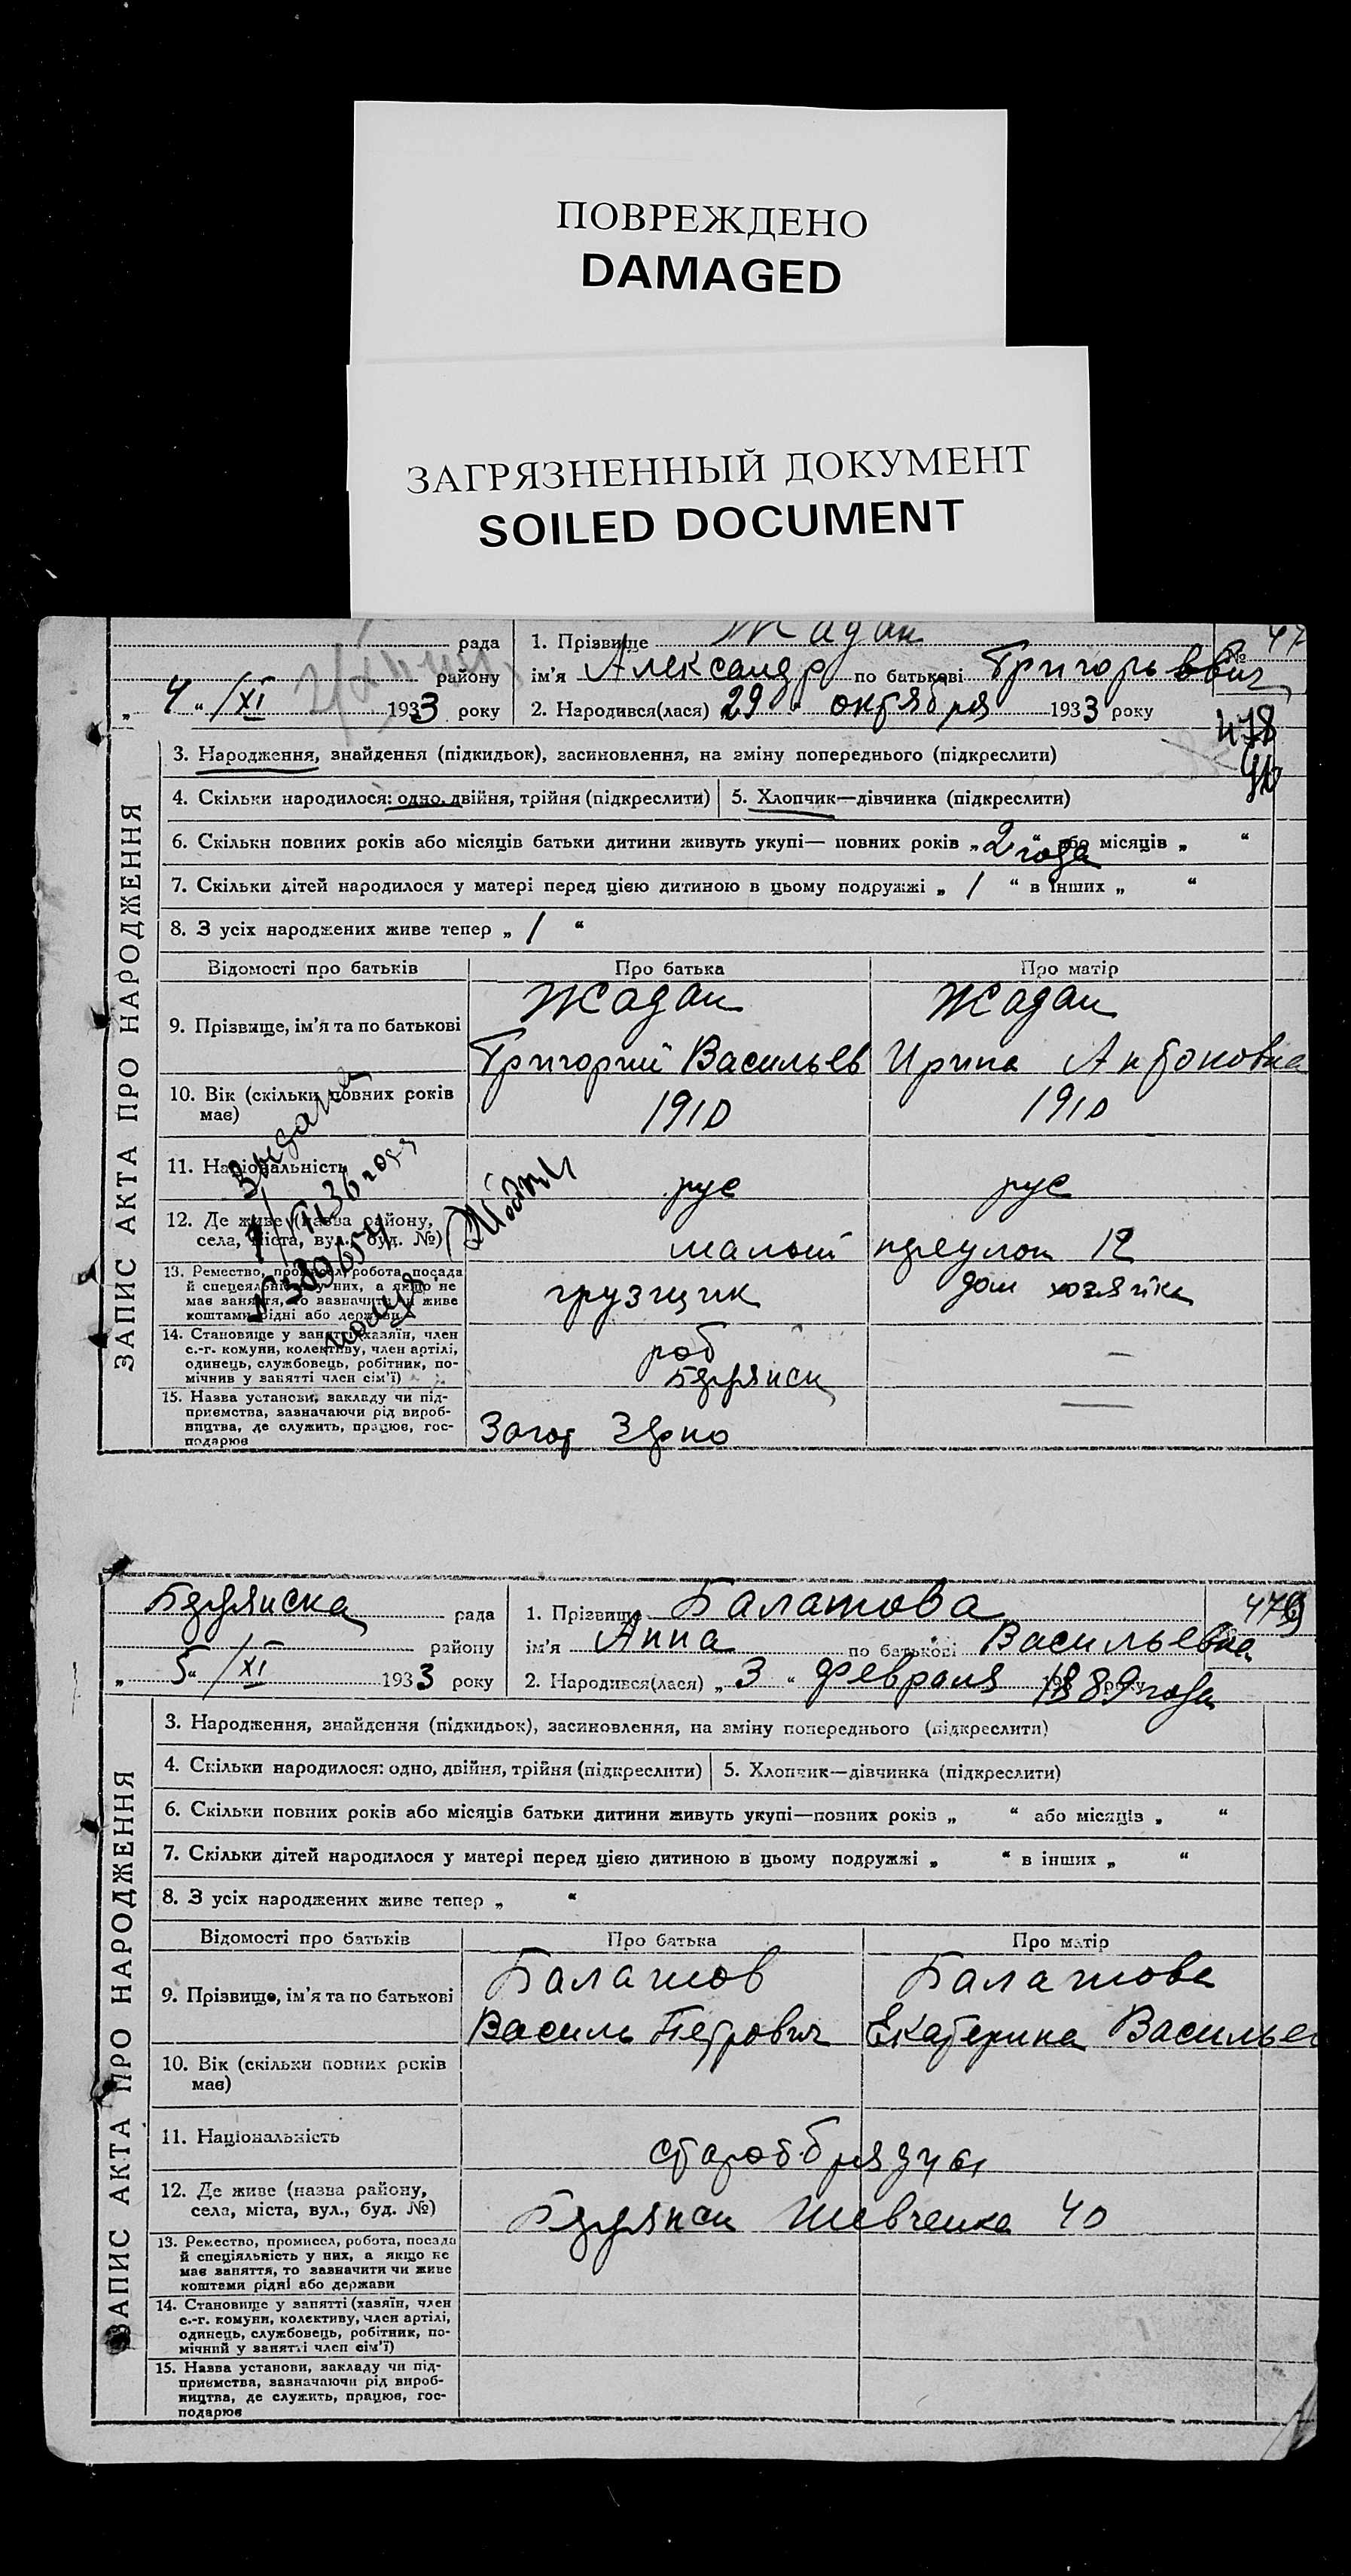 ПОВРЕЖДЕНО
DAMAGED
ЗАГРЯЗНЕННЫЙ ДОКУМЕНТ
SOILED DOCUMENT
ЗАПИС АКТА ПРО НАРОДЖЕННЯ
рада
району
„ 4 “ /XI 1933 року
1. Прізвище Жадан
ім’я Александр по батькові Григорьевич
2. Народився(лася) 29 “ октября 1933 року
№ 47
478
3. Народження, знайдення (підкидьок), засиновлення, на зміну попереднього (підкреслити)
4. Скільки народилося: одно, двійня, трійня (підкреслити) 5. Хлопчик—дівчинка (підкреслити)
6. Скільки повних років або місяців батьки дитини живуть укупі— повних років „ 2 года “ або місяців „ “
7. Скільки дітей народилося у матері перед цією дитиною в цьому подружжі „ 1 “ в інших „ “
8. З усіх народжених живе тепер „ 1 “
Відомості про батьків Про батька Про матір
9. Прізвище, ім’я та по батькові
Жадан Жадан
Григорий Васильев Ирина Антоновна
10. Вік (скільки повних років має)
1910 1910
11. Національність
рус рус
12. Де живе (назва району,
села, міста, вул., буд. №)
малый переулок 12
13. Ремество, промисел, робота, посада
й спеціяльність у них, а якщо не
має заняття, то зазначити чи живе
коштами рідні або держави
грузщик дом хозяйка
14. Становище у занятті (хазяїн, член
с.-г. комуни, колективу, член артілі,
одинець, службовець, робітник, по-
мічник у занятті член сім’ї)
раб —
15. Назва установи, закладу чи під-
приємства, зазначаючи рід вироб-
ництва, де служить, працює, гос-
подарює
Бердянск —
Загот Зерно
ЗАПИС АКТА ПРО НАРОДЖЕННЯ
Бердянска рада
району
„ 5 “ /XI 1933 року
1. Прізвище Балашова
ім’я Анна по батькові Васильевна
2. Народився(лася) „ 3 “ февраля 1889 года
479
3. Народження, знайдення (підкидьок), засиновлення, на зміну попереднього (підкреслити)
4. Скільки народилося: одно, двійня, трійня (підкреслити) 5. Хлопчик—дівчинка (підкреслити)
6. Скільки повних років або місяців батьки дитини живуть укупі—повних років „ “ або місяців „ “
7. Скільки дітей народилося у матері перед цією дитиною в цьому подружжі „ “ в інших „ “
8. З усіх народжених живе тепер „ “
Відомості про батьків Про батька Про матір
9. Прізвище, ім’я та по батькові
Балашов Балашова
Василь Петрович Екатерина Васильев
10. Вік (скільки повних років
має)
11. Національність
старообрядцы
12. Де живе (назва району,
села, міста, вул., буд. №)
Бердянск Шевченка 40
13. Ремество, промисел, робота, посада
й спеціяльність у них, а якщо не
має заняття, то зазначити чи живе
коштами рідні або держави
14. Становище у занятті (хазяїн, член
с.-г. комуни, колективу, член артілі,
одинець, службовець, робітник, по-
мічний у занятті член сім’ї)
15. Назва установи, закладу чи під-
приємства, зазначаючи рід вироб-
ництва, де служить, працює, гос-
подарює